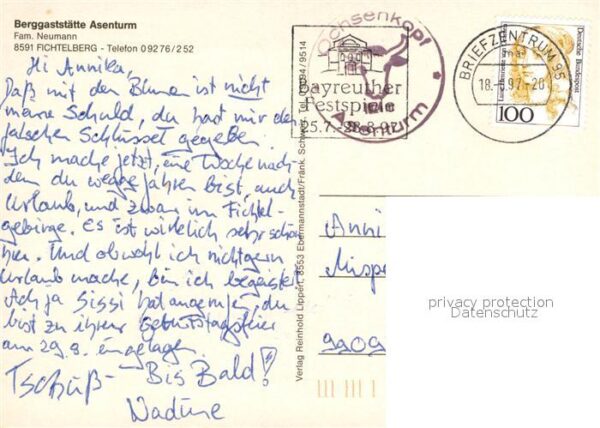 Berggaststätte Asenturm
Fam. Neumann
8591 FICHTELBERG - Telefon 0 92 76 / 2 52
Hi Annika,
Daß mit den Blumen ist nicht
meine Schuld, du hast mir den
falschen Schlüssel gegeben.
Ich mache jetzt, eine Woche nach-
dem du weggefahren bist, auch
Urlaub, und zwar im Fichtel-
gebirge. Es ist wirklich sehr schön
hier. Und obwohl ich nicht gern
Urlaub mache, bin ich begeistert
Ach ja Sissi hat angerufen, du
bist zu ihrer Geburtstagsfeier
am 29.8. eingeladen.
Tschüß - Bis Bald!
Nadine
Verlag Reinhold Lippert, 8553 Ebermannstadt/Fränk. Schweiz, Tel. 09194/9514
Bayreuther
Festspiele
25.7.-28.8.97
Ochsenkopf
Asenturm
BRIEFZENTRUM 95
Deutsche Bundespost
100
Anni
9909
privacy protection
Datenschutz